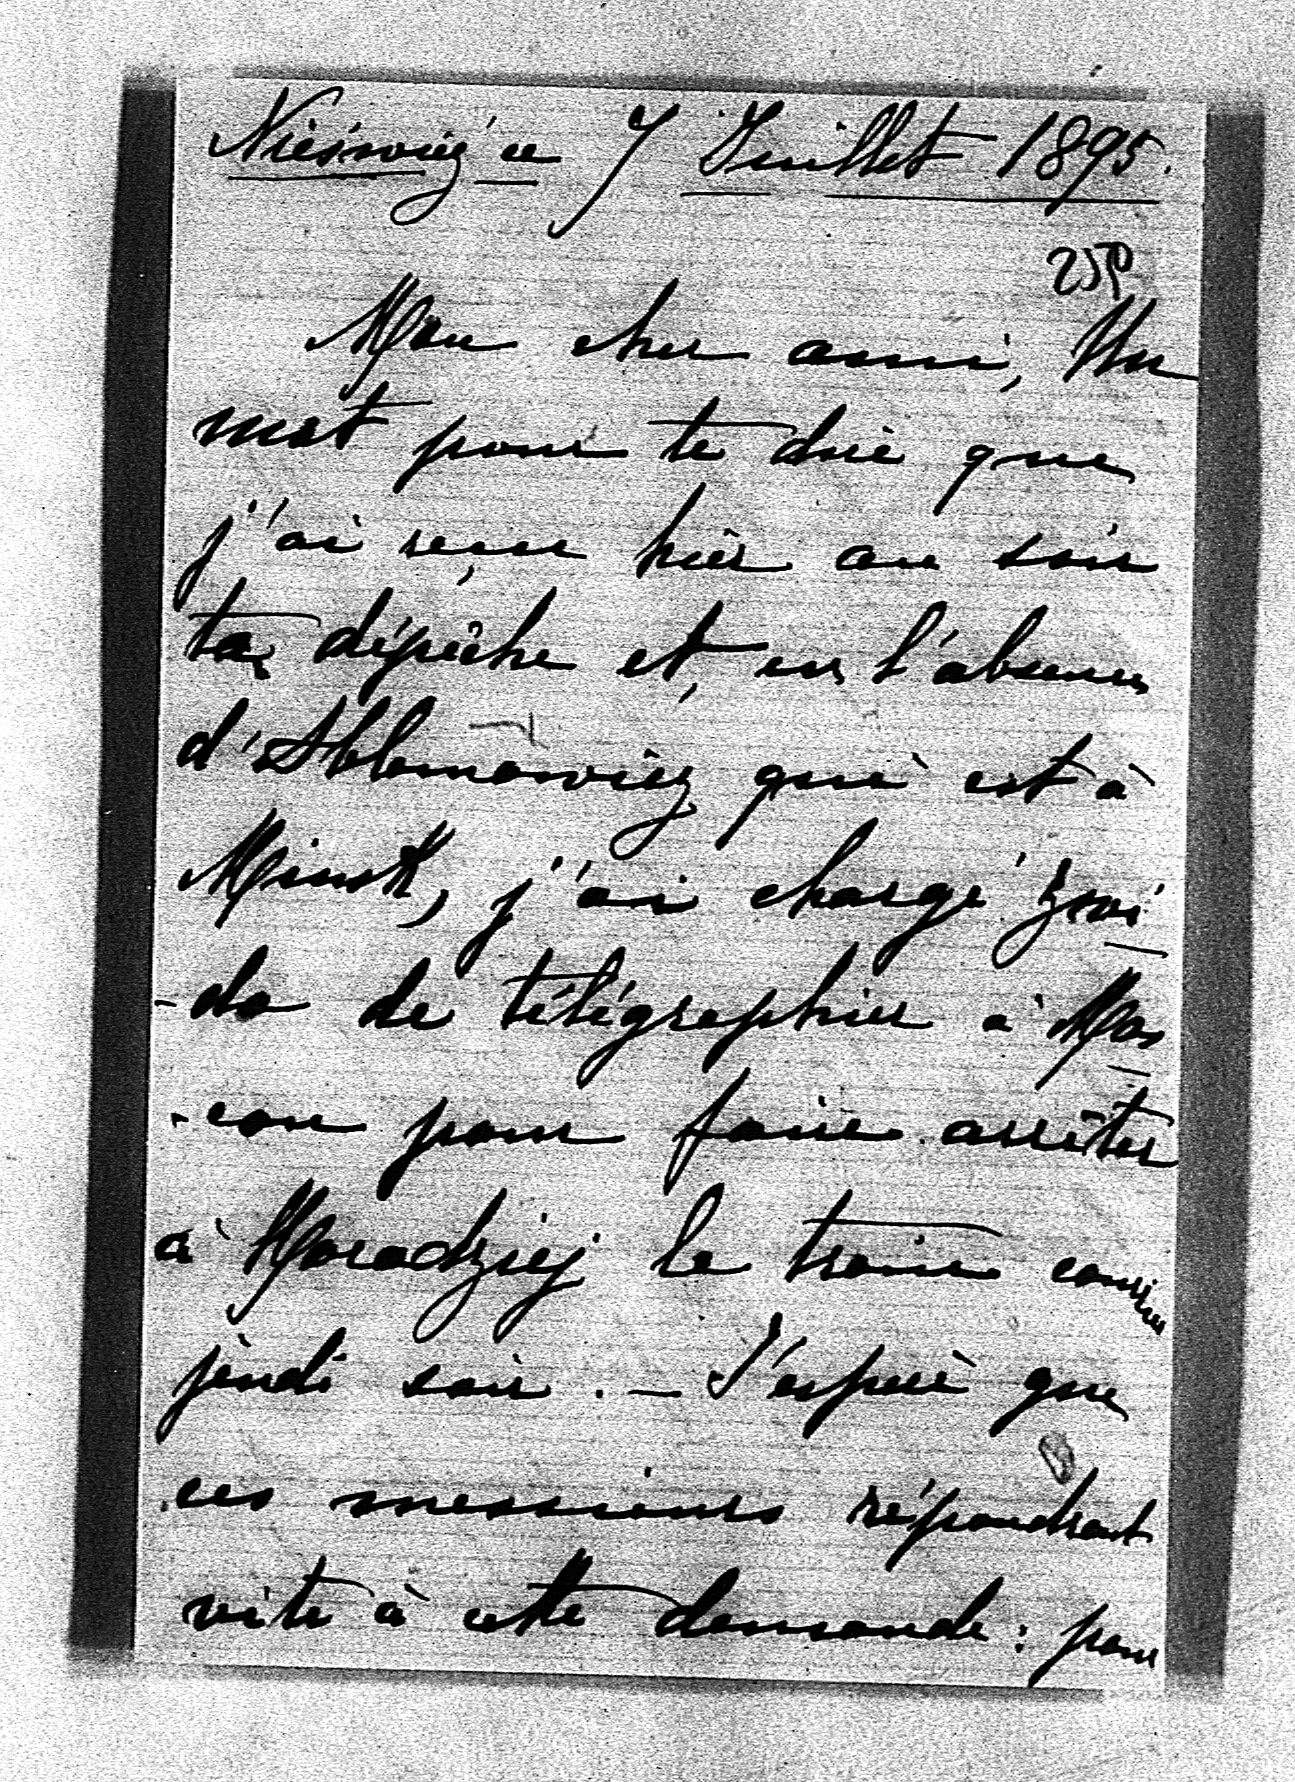 Nieśwież ce 7 Juillet 1895.
Mon cher ami, Un
mot pour te dire que
j'ai reçu hier au soir
ta dépêche et, en l'absence
d'Abłamowicz qui est à
Minsk, j'ai chargé
-do de télégraphier à Mos
-cou pour faire arrêter
à Horodziej le train courrier
jeudi soir. — J'espère que
ces messieurs répondront
vite à cette demande : pour